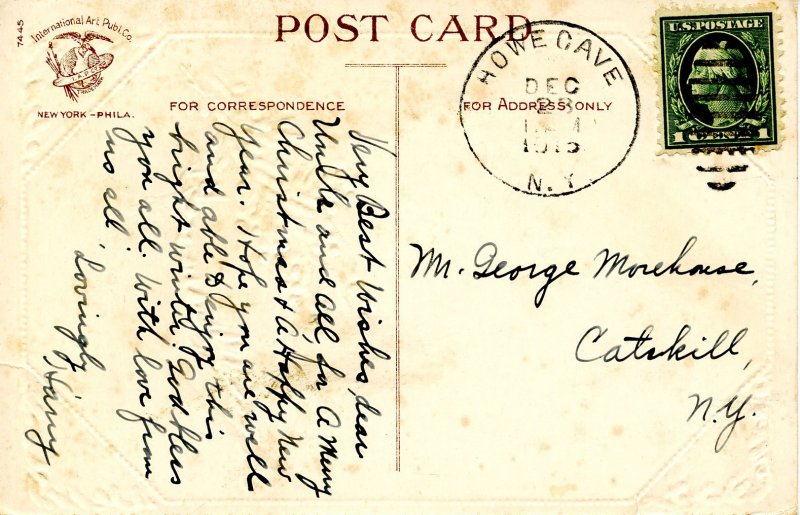 7445
International Art Publ. Co.
NEW YORK - PHILA.
POST CARD
FOR CORRESPONDENCE
FOR ADDRESS ONLY
HOWE CAVE
DEC
23
1915
N.Y.
U.S. POSTAGE
1 CENTS 1
Very Best Wishes, dear
Uncle and all for a Merry
Christmas & A Happy New
Year. Hope you are well
and able to enjoy this
bright winter. God bless
you all. With love from
us all. Lovingly
Harry
Mr. George Morehouse,
Catskill,
N.Y.